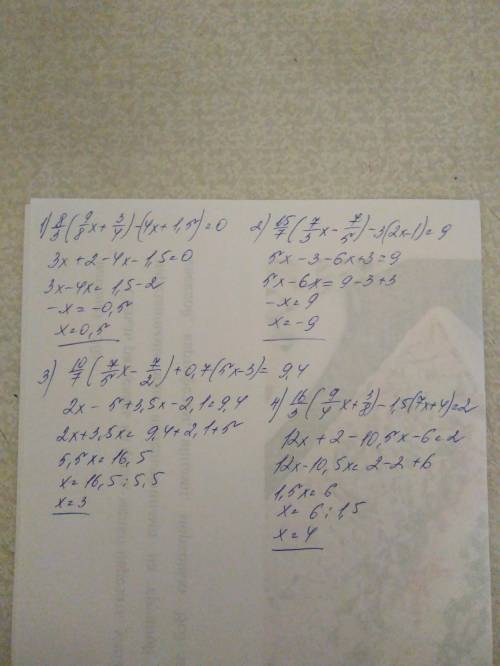 1) 8/3 (9/8 x + 3/4) - (4x + 1,5) = 0
3x + 2 - 4x - 1,5 = 0
3x - 4x = 1,5 - 2
-x = -0,5
x = 0,5
2) 15/7 (7/3 x - 7/5) - 3(2x - 1) = 9
5x - 3 - 6x + 3 = 9
5x - 6x = 9 - 3 + 3
-x = 9
x = -9
3) 10/7 (7/5 x - 7/2) + 0,7(5x - 3) = 9,4
2x - 5 + 3,5x - 2,1 = 9,4
2x + 3,5x = 9,4 + 2,1 + 5
5,5x = 16,5
x = 16,5 : 5,5
x = 3
4) 16/3 (9/4 x + 3/8) - 1,5(7x + 4) = 2
12x + 2 - 10,5x - 6 = 2
12x - 10,5x = 2 - 2 + 6
1,5x = 6
x = 6 : 1,5
x = 4